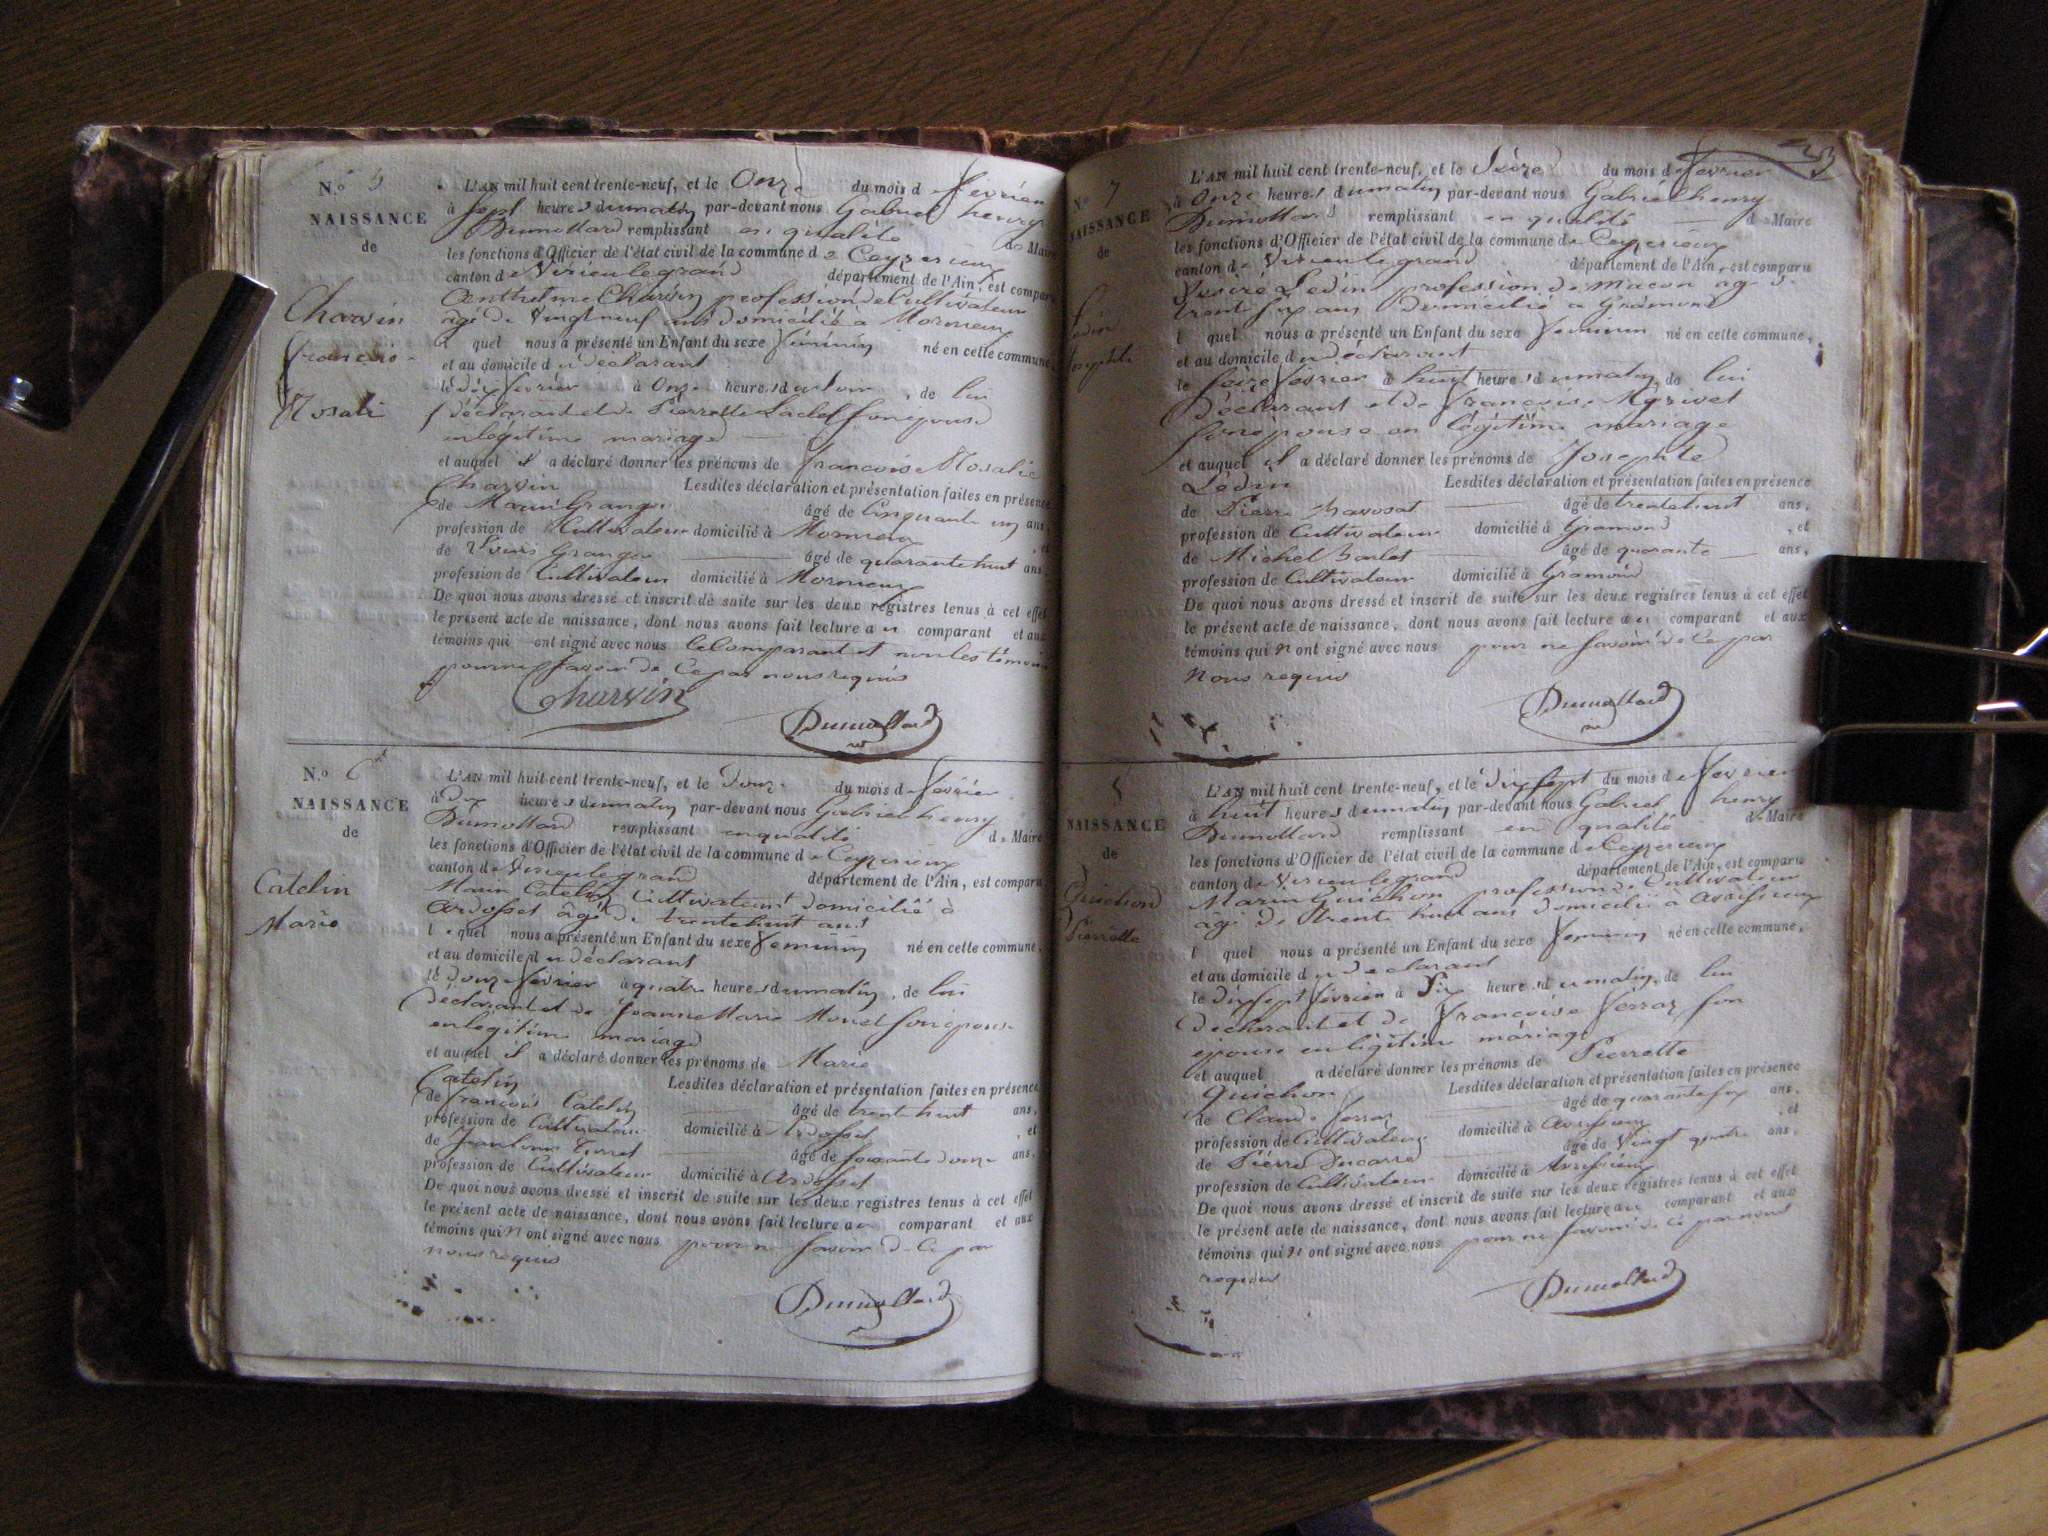 N.o 5
NAISSANCE
de
Charvin
françoise
Rosali
L'AN mil huit cent trente-neuf, et le Onze du mois de février
à sept heures du matin par-devant nous Gabriel henry
Dumollard remplissant en qualité de Maire
les fonctions d'Officier de l'état civil de la commune de Ceyzerieux
canton de Virieulegrand département de l'Ain, est comparu
Anthelme Charvin profession de Cultivateur
âgé de Vingt neuf ans domicilié à Mornieux
quel nous a présenté un Enfant du sexe féminin né en cette commune,
et au domicile du déclarant
le dix février à Onze heures du soir, de lui
déclarant et de Pierrette Laclef son épouse
en légitime mariage
et auquel il a déclaré donner les prénoms de françoise Rosalie
Charvin Lesdites déclaration et présentation faites en présence
de Marin Grange âgé de Cinquante un ans,
profession de Cultivateur domicilié à Mornieux, et
de Louis Grange âgé de quarante huit ans,
profession de Cultivateur domicilié à Mornieux
De quoi nous avons dressé et inscrit de suite sur les deux registres tenus à cet effet
le présent acte de naissance, dont nous avons fait lecture au comparant et aux
témoins qui ont signé avec nous le Comparant et non les témoins
pour ne savoir de ce par nous requis
Charvin
Dumollard
N.o 6
NAISSANCE
de
Catelin
Marie
L'AN mil huit cent trente-neuf, et le Douze du mois de février
à Dix heures du matin par-devant nous Gabriel henry
Dumollard remplissant en qualité de Maire
les fonctions d'Officier de l'état civil de la commune de Ceyzerieux
canton de Virieulegrand département de l'Ain, est comparu
Marin Catelin Cultivateur domicilié à
Ardosset âgé de trente huit ans
lequel nous a présenté un Enfant du sexe feminin né en cette commune,
et au domicile du déclarant
le douze février à quatre heures du matin, de lui
déclarant et de Jeanne Marie Monet son épouse
en légitime mariage
et auquel il a déclaré donner les prénoms de Marie
Catelin Lesdites déclaration et présentation faites en présence
de françois Catelin âgé de trent huit ans,
profession de Cultivateur domicilié à Ardosset, et
de âgé de soixante douze ans,
profession de Cultivateur domicilié à Ardosset
De quoi nous avons dressé et inscrit de suite sur les deux registres tenus à cet effet
le présent acte de naissance, dont nous avons fait lecture au comparant et aux
témoins qui n ont signé avec nous pour ne savoir de ce par
nous requis
Dumollard
N.o 7
NAISSANCE
de
Ledin
Josephte
L'AN mil huit cent trente-neuf, et le Seize du mois de février
à Onze heures du matin par-devant nous Gabriel henry
Dumollard remplissant en qualité de Maire
les fonctions d'Officier de l'état civil de la commune de Ceyzerieux
canton de Virieulegrand département de l'Ain, est comparu
Desiré Ledin profession de macon agé de
trente six ans domicilié à Gramond
l quel nous a présenté un Enfant du sexe féminin né en cette commune,
et au domicile du déclarant
le Seize février à huit heures du matin, de lui
déclarant et de françoise
son epouse en légitime mariage
et auquel il a déclaré donner les prénoms de Josephte
Lédin Lesdites déclaration et présentation faites en présence
de Pierre âgé de trente huit ans,
profession de Cultivateur domicilié à Gramond, et
de Michel Barlet âgé de quarante ans,
profession de Cultivateur domicilié à Gramond
De quoi nous avons dressé et inscrit de suite sur les deux registres tenus à cet effet
le présent acte de naissance, dont nous avons fait lecture au comparant et aux
témoins qui n ont signé avec nous pour ne savoir de Ce par
nous requis
Dumollard
8
NAISSANCE
de
Guichon
Pierrette
L'AN mil huit cent trente-neuf, et le dix sept du mois de février
à huit heures du matin par-devant nous Gabriel henry
Dumollard remplissant en qualité de Maire
les fonctions d'Officier de l'état civil de la commune de Ceyzerieux
canton de Virieulegrand département de l'Ain, est comparu
Marin Guichon profession de Cultivateur
âgé de trente huit ans domicilié à Avrissieux
l quel nous a présenté un Enfant du sexe féminin né en cette commune,
et au domicile du declarant
le dix sept février à Six heures du matin, de lui
declarant et de françoise ferraz son
epouse en légitime mariage
et auquel a déclaré donner les prénoms de Pierrette
Guichon Lesdites déclaration et présentation faites en présence
de Claude ferraz âgé de quarante six ans,
profession de Cultivateur domicilié à Avrissieux, et
de Pierre Ducarre âgé de Vingt quatre ans,
profession de Cultivateur domicilié à Avrissieux
De quoi nous avons dressé et inscrit de suite sur les deux registres tenus à cet effet
le présent acte de naissance, dont nous avons fait lecture au comparant et aux
témoins qui n ont signé avec nous pour ne savoir de ce par nous
requis
Dumollard